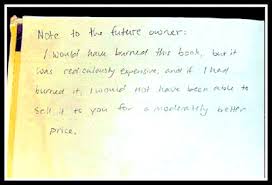 Note to the future owner:
I would have burned this book, but it
was rediculously expensive, and if I had
burned it, I would not have been able to
sell it to you for a moderately better
price.